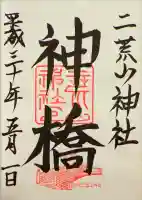 二荒山神社
神橋
平成三十年五月一日